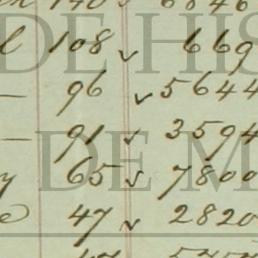 140 6846
l 108 669
— 96 5644
— 91 3594
y 65 7800
e 47 2820